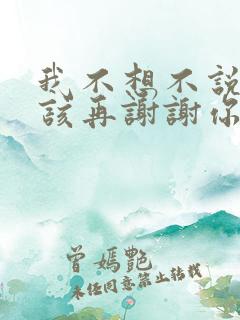 我不想不說
該再謝謝你
曾嫣艷
未經同意禁止轉載